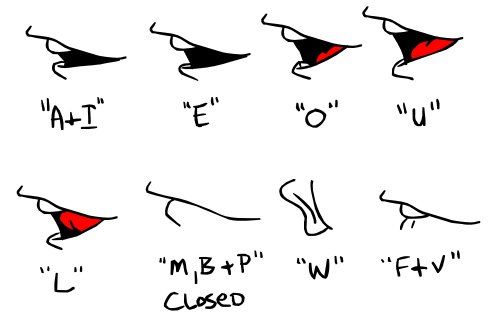 "A+I"
"E"
"O"
"U"
"L"
"M,B+P"
CLOSED
"W"
"F+V"